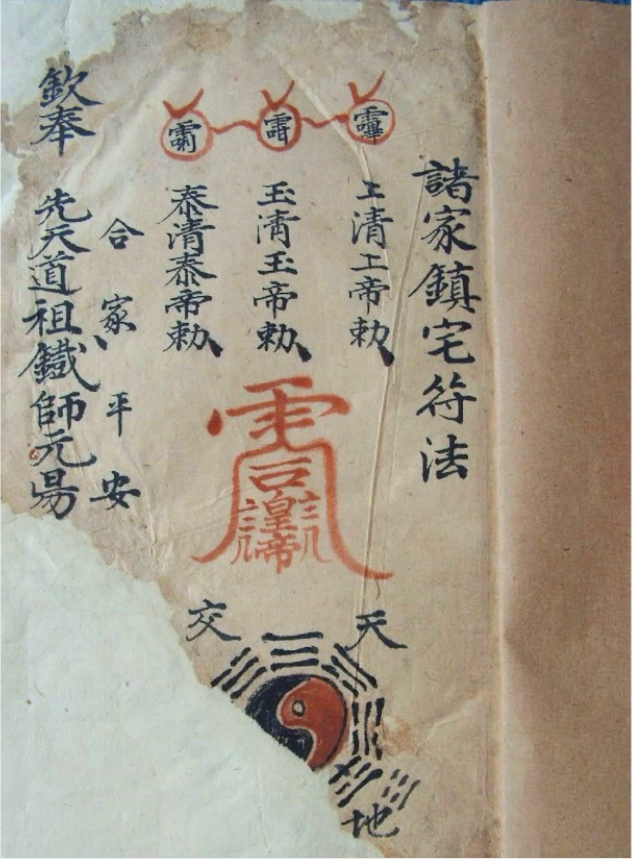 諸家鎮宅符法
上清上帝勅
玉清玉帝勅
泰清泰帝勅
皇帝
合家平安
欽奉
先天道祖鐵師元易
天
交
地